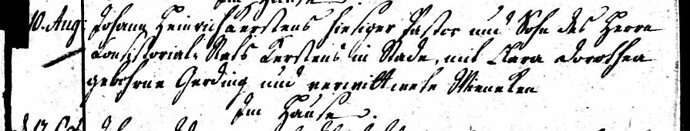 10. Aug. Johann Heinrich Kerstens hiesiger Pastor und Sohn des Herrn
Consistorial-Raths Kerstens in Stade, mit Clara Dorothea
gebohrne Gerding und verwittwete Wieneken
Im Hause.